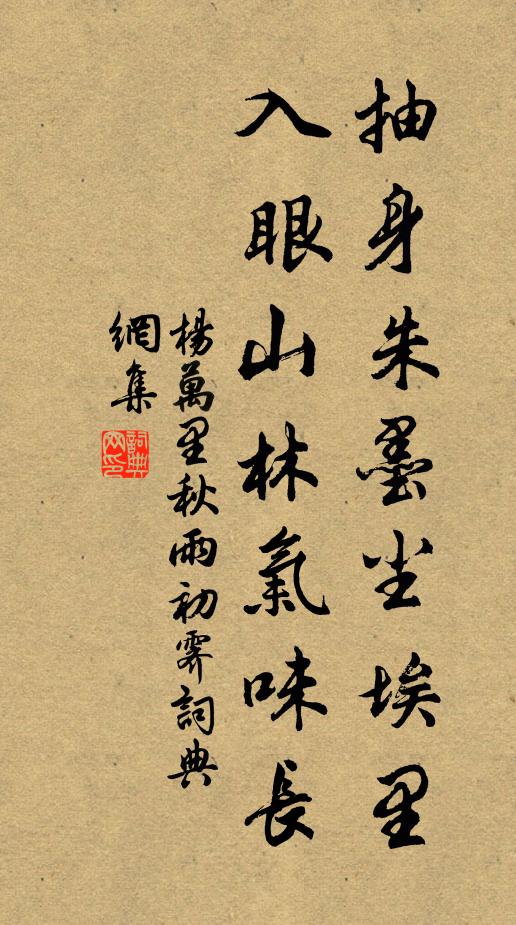 抽身朱墨尘埃里
入眼山林氣味長
楊萬里秋雨初霽詞典
網集
詞典
网印